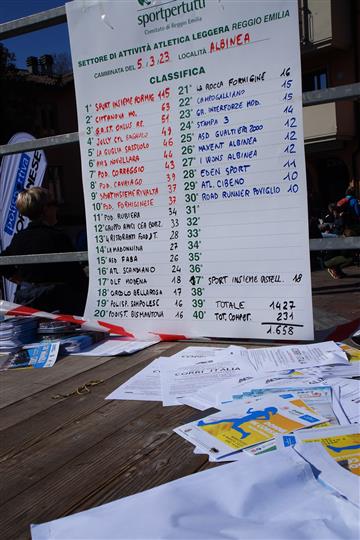 sportpertutti
Comitato di Reggio Emilia
SETTORE DI ATTIVITÀ ATLETICA LEGGERA REGGIO EMILIA
CAMMINATA DEL 5.3.23 LOCALITÀ ALBINEA
CLASSIFICA
1° SPORT INSIEME FORMIG 115
2° CITTANOVA MO. 63
3° G.S.T. ONLUS RE. 51
4° JOLLY CTL BAGNOLO 49
5° LA GUGLIA SASSUOLO 46
6° NOVELLARA 45
7° POD. CORREGGIO 43
8° POD. CAVRIAGO 39
9° SPORTINSIEME RIVALTA 37
10° POD. FORMIGINESE 37
11° POD. RUBIERA 34
12° GRUPPO AMICI CEA CORR. 33
13° 4 RISTORANTI 28
14° LA MADONNINA 27
15° ASD FABA 26
16° ATL SCANDIANO 24
17° DLF MODENA 18
18° CIRCOLO BELLAROSA 18
19° POLISP. SAMPOLESE 16
20° PODIST. BISMANTOVA 16
21° LA ROCCA FORMIGINE 16
22° CAMPOGALLIANO 15
23° GR. INTERFORZE MOD. 15
24° STAMPA 3 14
25° ASD GUALTIERI 2000 12
26° MAXENT ALBINEA 12
27° I WONS ALBINEA 12
28° EDEN SPORT 11
29° ATL. CIBENO 10
30° ROAD RUNNER POVIGLIO 10
31°
32°
33°
34°
35°
36°
37° SPORT INSIEME CASTELL. 18
38°
39° TOTALE 1427
40° TOT. COMPET. 231
1.658
CORRI ITALIA